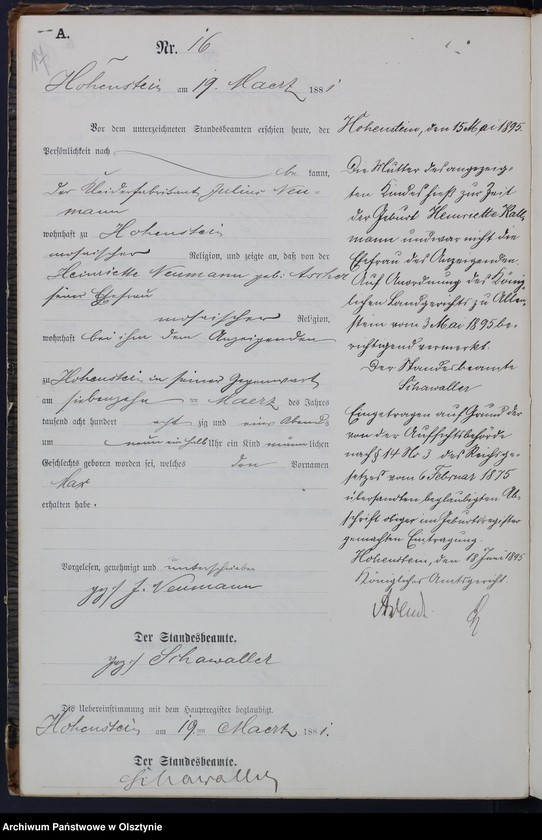 A.
17
Nr. 16
Hohenstein am 19. Maerz 1881
Vor dem unterzeichneten Standesbeamten erschien heute, der
Persönlichkeit nach
be kannt,
der Julius Neu-
mann
wohnhaft zu Hohenstein
mosaischer Religion, und zeigte an, daß von der
Henriette Neumann geb: Ascher
seiner Ehefrau
mosaischer Religion,
wohnhaft bei ihm dem Anzeigenden
zu Hohenstein in seiner Gegenwart
am siebenzehn ten Maerz des Jahres
tausend acht hundert acht zig und eins Abends
um neun ein halb Uhr ein Kind männ lichen
Geschlechts geboren worden sei, welches den Vornamen
Max
erhalten habe.
Vorgelesen, genehmigt und unterschrieben
gez: J. Neumann
Der Standesbeamte.
gez: Schawaller
Die Uebereinstimmung mit dem Hauptregister beglaubigt.
Hohenstein am 19ten Maerz 1881.
Der Standesbeamte.
Schawaller
Hohenstein, den 15 Mai 1895.
Die Mutter des angezeig-
ten Kindes hieß zur Zeit
der Geburt Henriette Kall-
mann und war nicht die
Ehefrau des Anzeigenden.
Auf Anordnung des König-
lichen Landgerichts zu Allen-
stein vom 3 Mai 1895 be-
richtigend vermerkt.
Der Standesbeamte
Schawaller
Eingetragen auf Grund der
von der Aufsichtsbehörde
nach § 14 No 3 des Reichsge-
setzes vom 6 Februar 1875
übersandten beglaubigten Ab-
schrift obiger im Geburtsregister
gemachten Eintragung.
Hohenstein, den 18 Juni 1895
Königliches Amtsgericht.
Archiwum Państwowe w Olsztynie